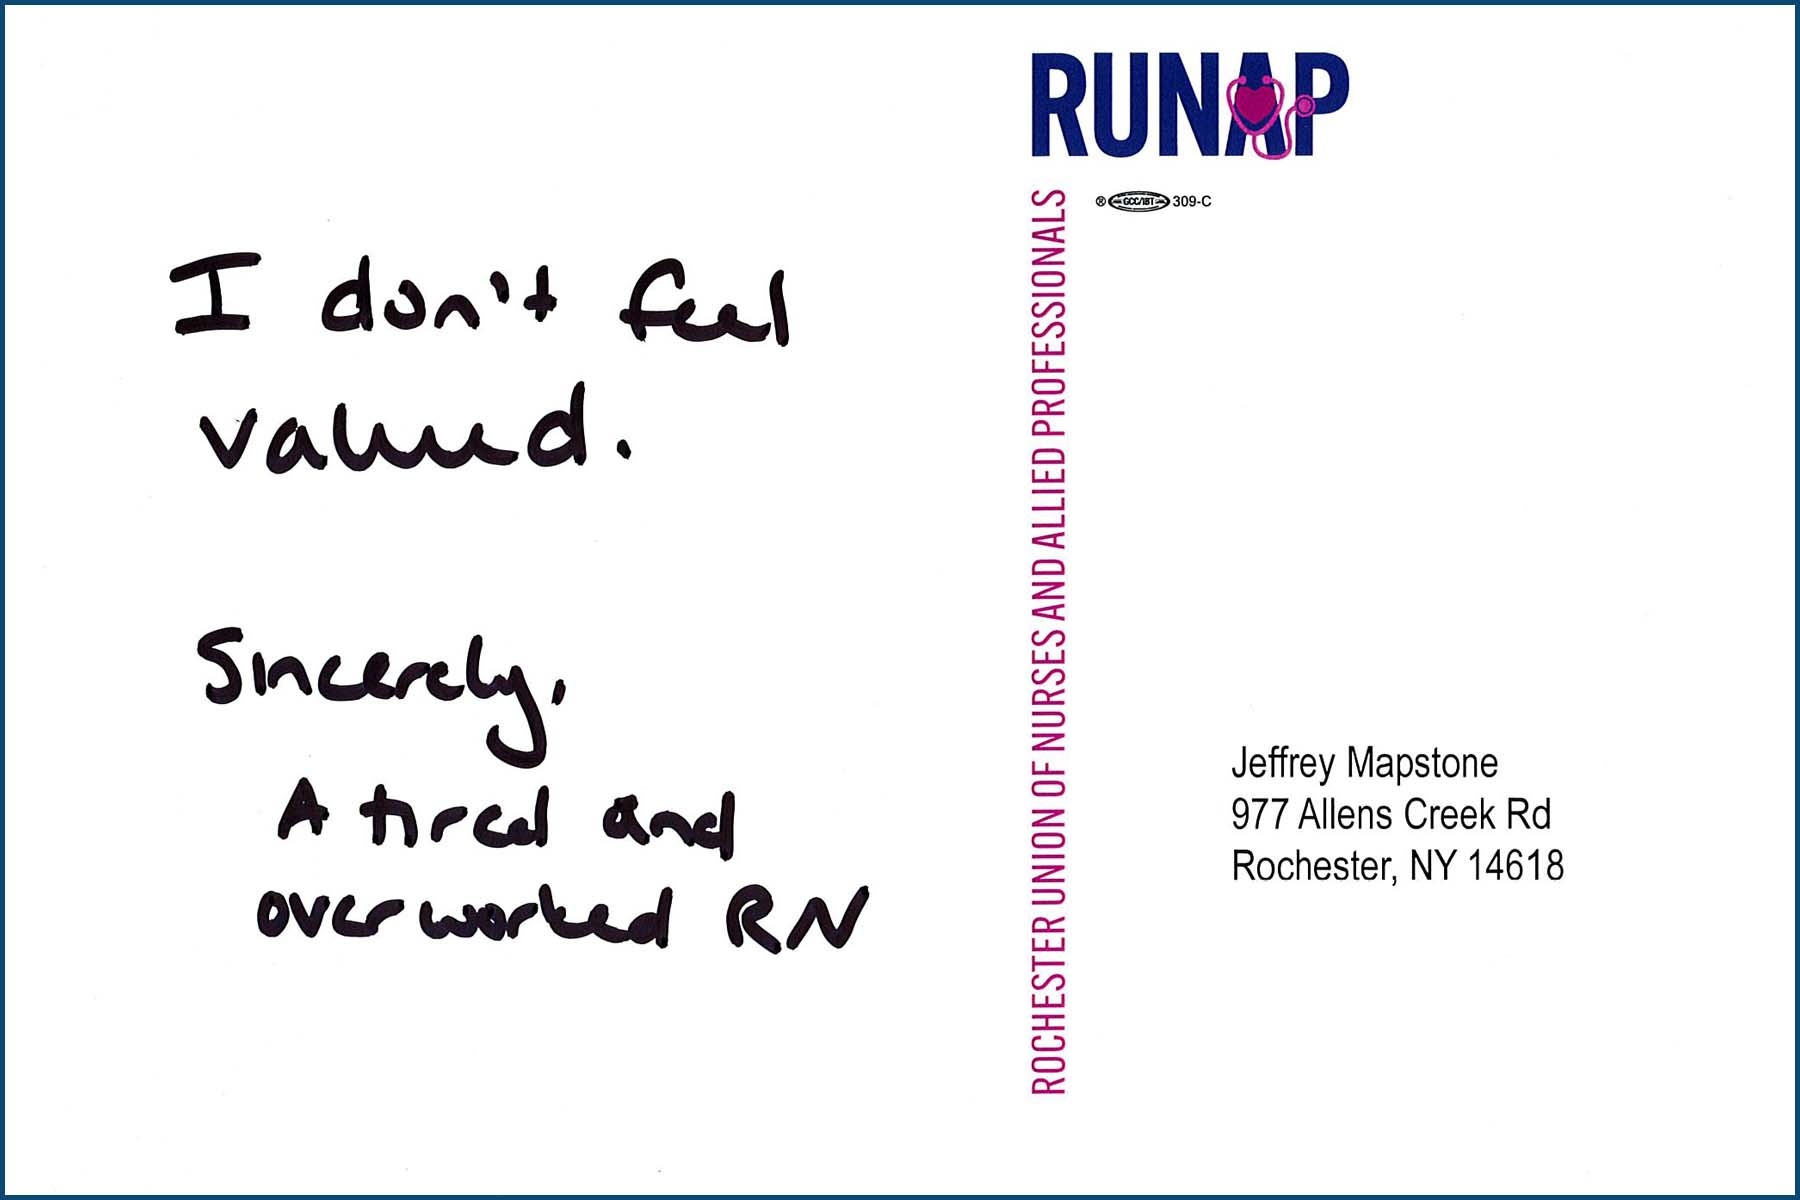 I don't feel
valued.
Sincerely,
A tired and
overworked RN
RUNAP
® GCC/IBT 309-C
ROCHESTER UNION OF NURSES AND ALLIED PROFESSIONALS
Jeffrey Mapstone
977 Allens Creek Rd
Rochester, NY 14618